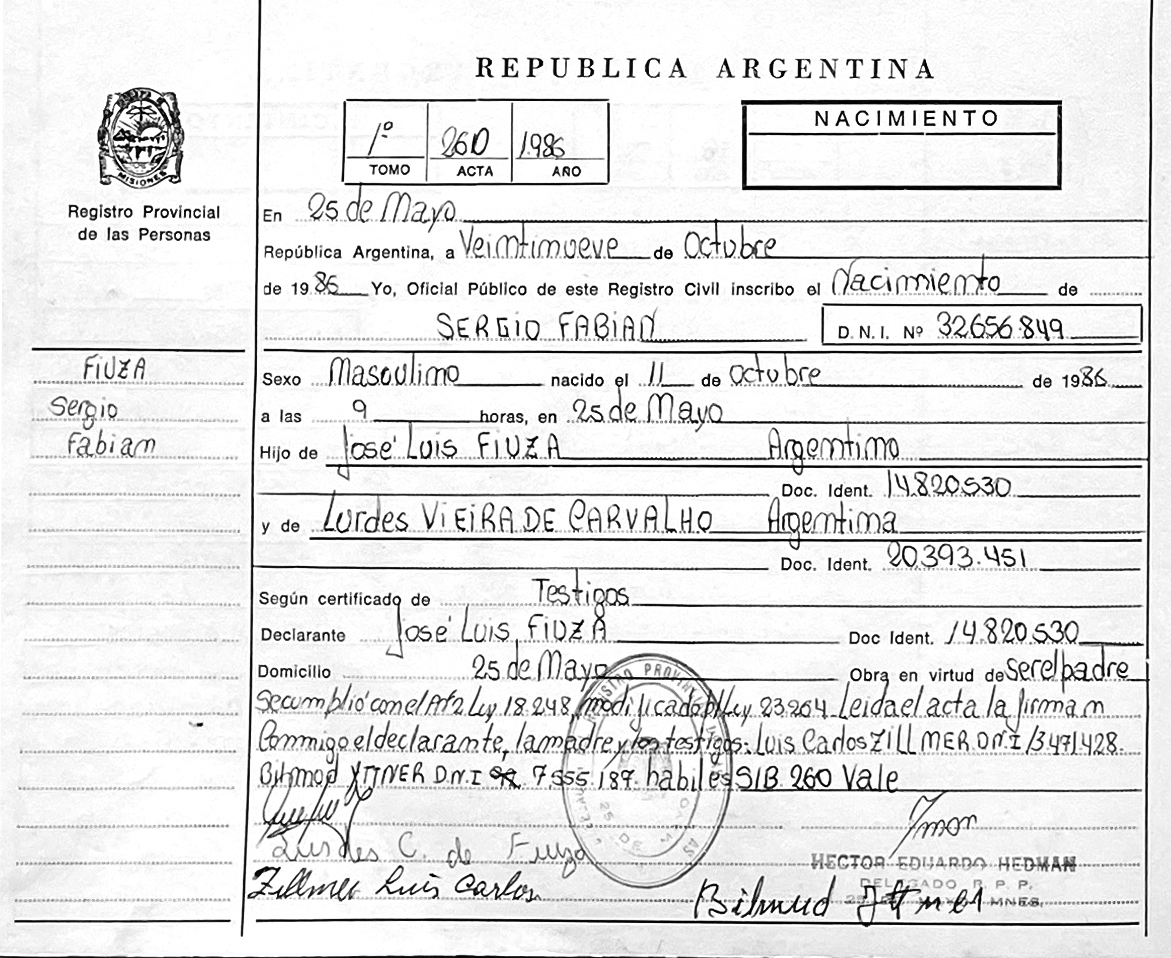 REPUBLICA ARGENTINA
1º 260 1986
TOMO ACTA AÑO
NACIMIENTO
MISIONES
Registro Provincial
de las Personas
En 25 de Mayo
República Argentina, a Veintinueve de Octubre
de 1986 Yo, Oficial Público de este Registro Civil inscribo el Nacimiento de
SERGIO FABIAN D.N.I. Nº 32.656.849
FIUZA
Sergio
Fabian
Sexo Masculino nacido el 11 de Octubre de 1986
a las 9 horas, en 25 de Mayo
Hijo de José Luis FIUZA Argentino
Doc. Ident. 14.820.530
y de Lurdes VIEIRA DE CARVALHO Argentina
Doc. Ident. 20.393.451
Según certificado de Testigos
Declarante José Luis FIUZA Doc Ident. 14.820.530
Domicilio 25 de Mayo Obra en virtud de ser el padre
Se cumplió con el Art 2 Ley 18.248, modificada p/ Ley 23.264 Leida el acta la firman
Conmigo el declarante, la madre y los testigos: Luis Carlos ZILLMER D.N.I 13.471.428.
D.N.I 7.555.187. habiles S/B 260 Vale
Lurdes C. de Fiuza
HECTOR EDUARDO HEDMAN
DELEGADO R. P. P.
25 DE MAYO MNES.
Zillmer Luis Carlos